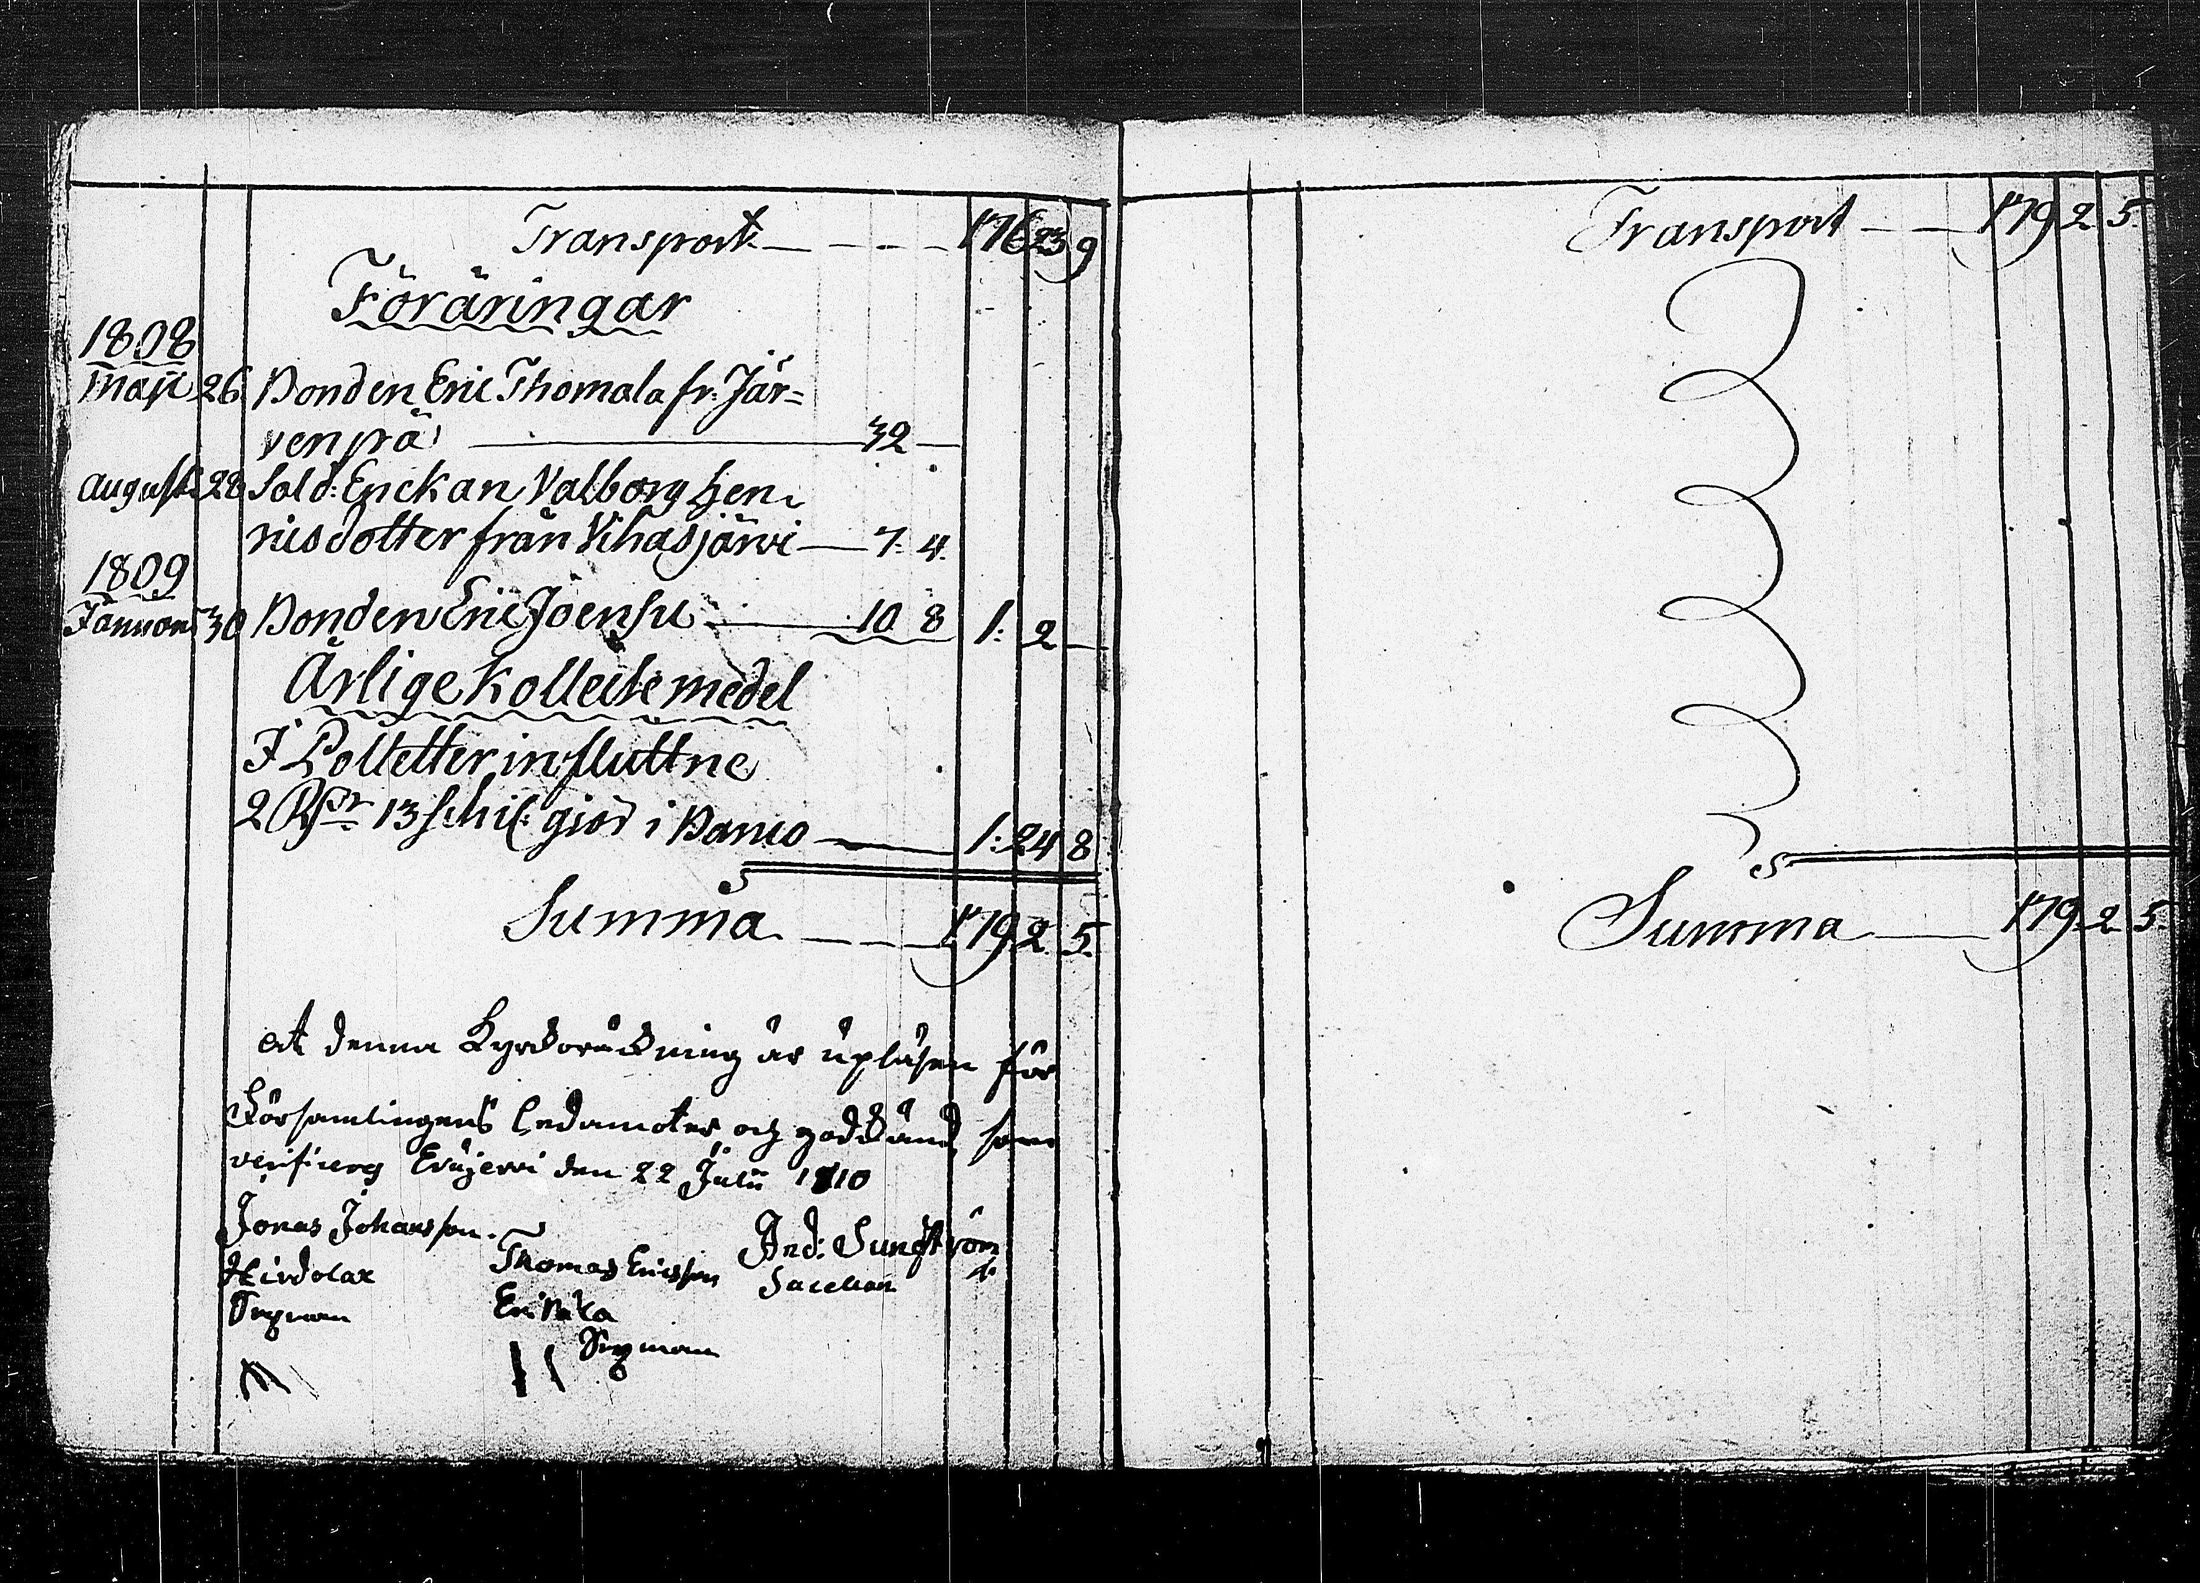 Transport — — — 176 23 9
Föräringar
1808
Maji 26 Bonden Eric Thomala fr: Jär=
venpä — 32 —
August 28 Sold: Enckan Valborg Hen-
ricsdotter från Vihasjärvi — 7. 4.
1809
Januari 30 Bonden Eric Joensu — 10 8 1: 2 —
Årlige Kollecte medel
I Polletter influttne
2 Rdr 13 schil: giör i Banco — 1: 24 8
Summa — — — 179. 2. 5.
at denna Kyrkoräckning är upläsen för
Församlingens Ledamoter och godkänd, som
verificeras Eräjervi den 22 Julii 1810
Jonas Johansson
Hirdolax
Sexman
Thomas Ericsson
Eri
Sexman
And: Sundström
Sacellan
Transport — — 179 2 5.
Summa — 179. 2 5.